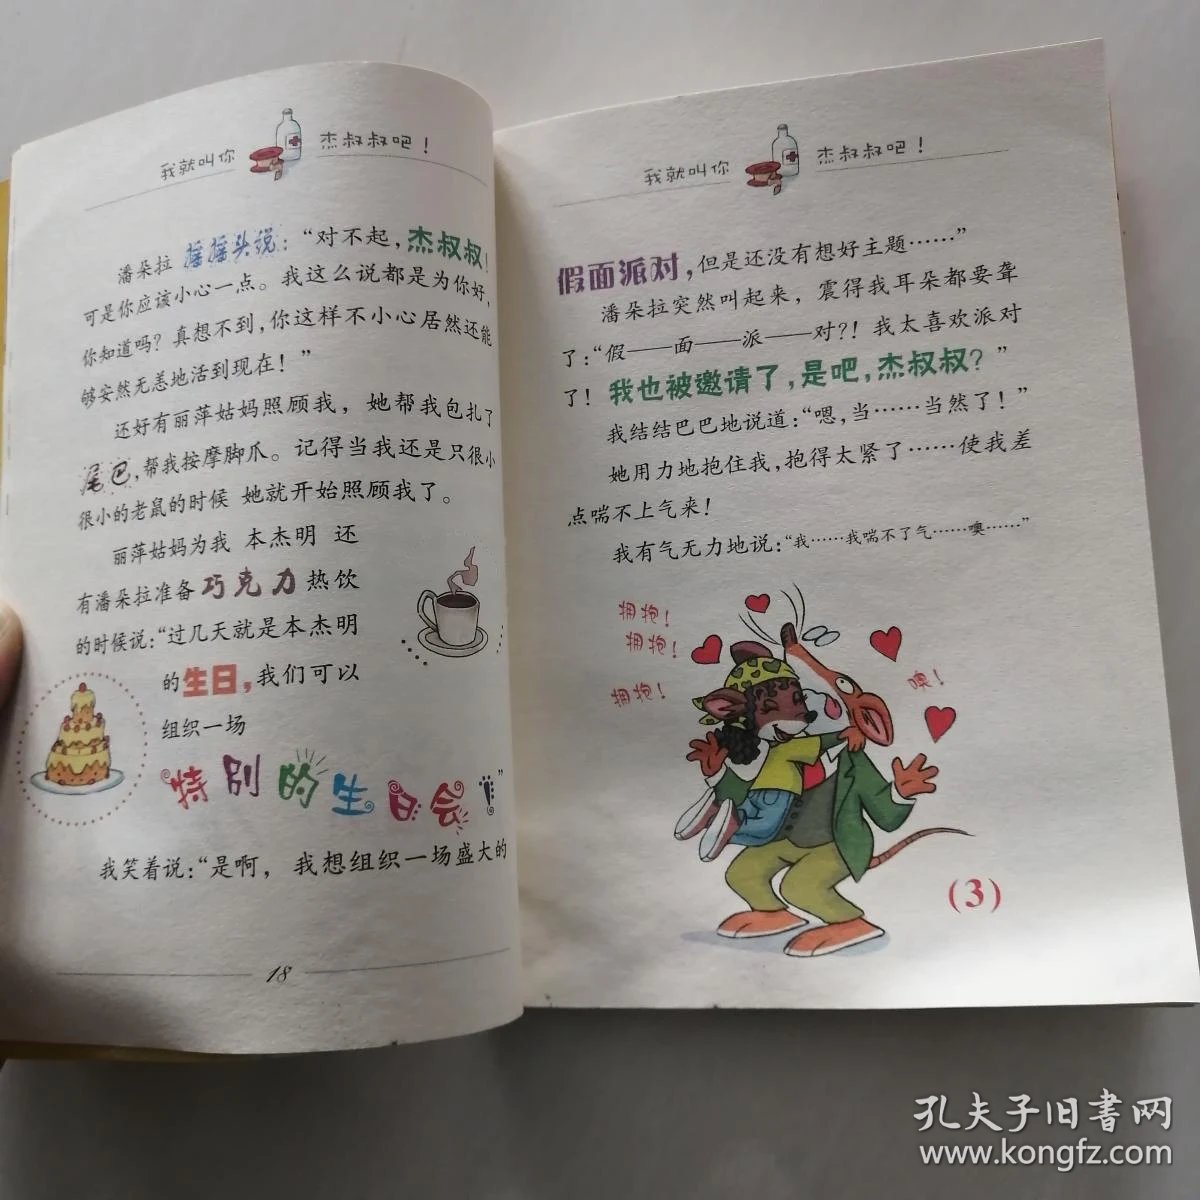 我就叫你 杰叔叔吧！
潘朵拉 摇摇头说：“对不起，杰叔叔！
可是你应该小心一点。我这么说都是为你好，
你知道吗？真想不到，你这样不小心居然还能
够安然无恙地活到现在！”
还好有丽萍姑妈照顾我，她帮我包扎了
尾巴，帮我按摩脚爪。记得当我还是只很小
很小的老鼠的时候 她就开始照顾我了。
丽萍姑妈为我 本杰明 还
有潘朵拉准备巧克力热饮
的时候说：“过几天就是本杰明
的生日，我们可以
组织一场
特别的生日会！”
我笑着说：“是啊，我想组织一场盛大的
18
我就叫你 杰叔叔吧！
假面派对，但是还没有想好主题……”
潘朵拉突然叫起来，震得我耳朵都要聋
了：“假——面——派——对？！我太喜欢派对
了！我也被邀请了，是吧，杰叔叔？”
我结结巴巴地说道：“嗯，当……当然了！”
她用力地抱住我，抱得太紧了……使我差
点喘不上气来！
我有气无力地说：“我……我喘不了气……噢……”
拥抱！
拥抱！
拥抱！
噢！
(3)
孔夫子旧书网
www.kongfz.com